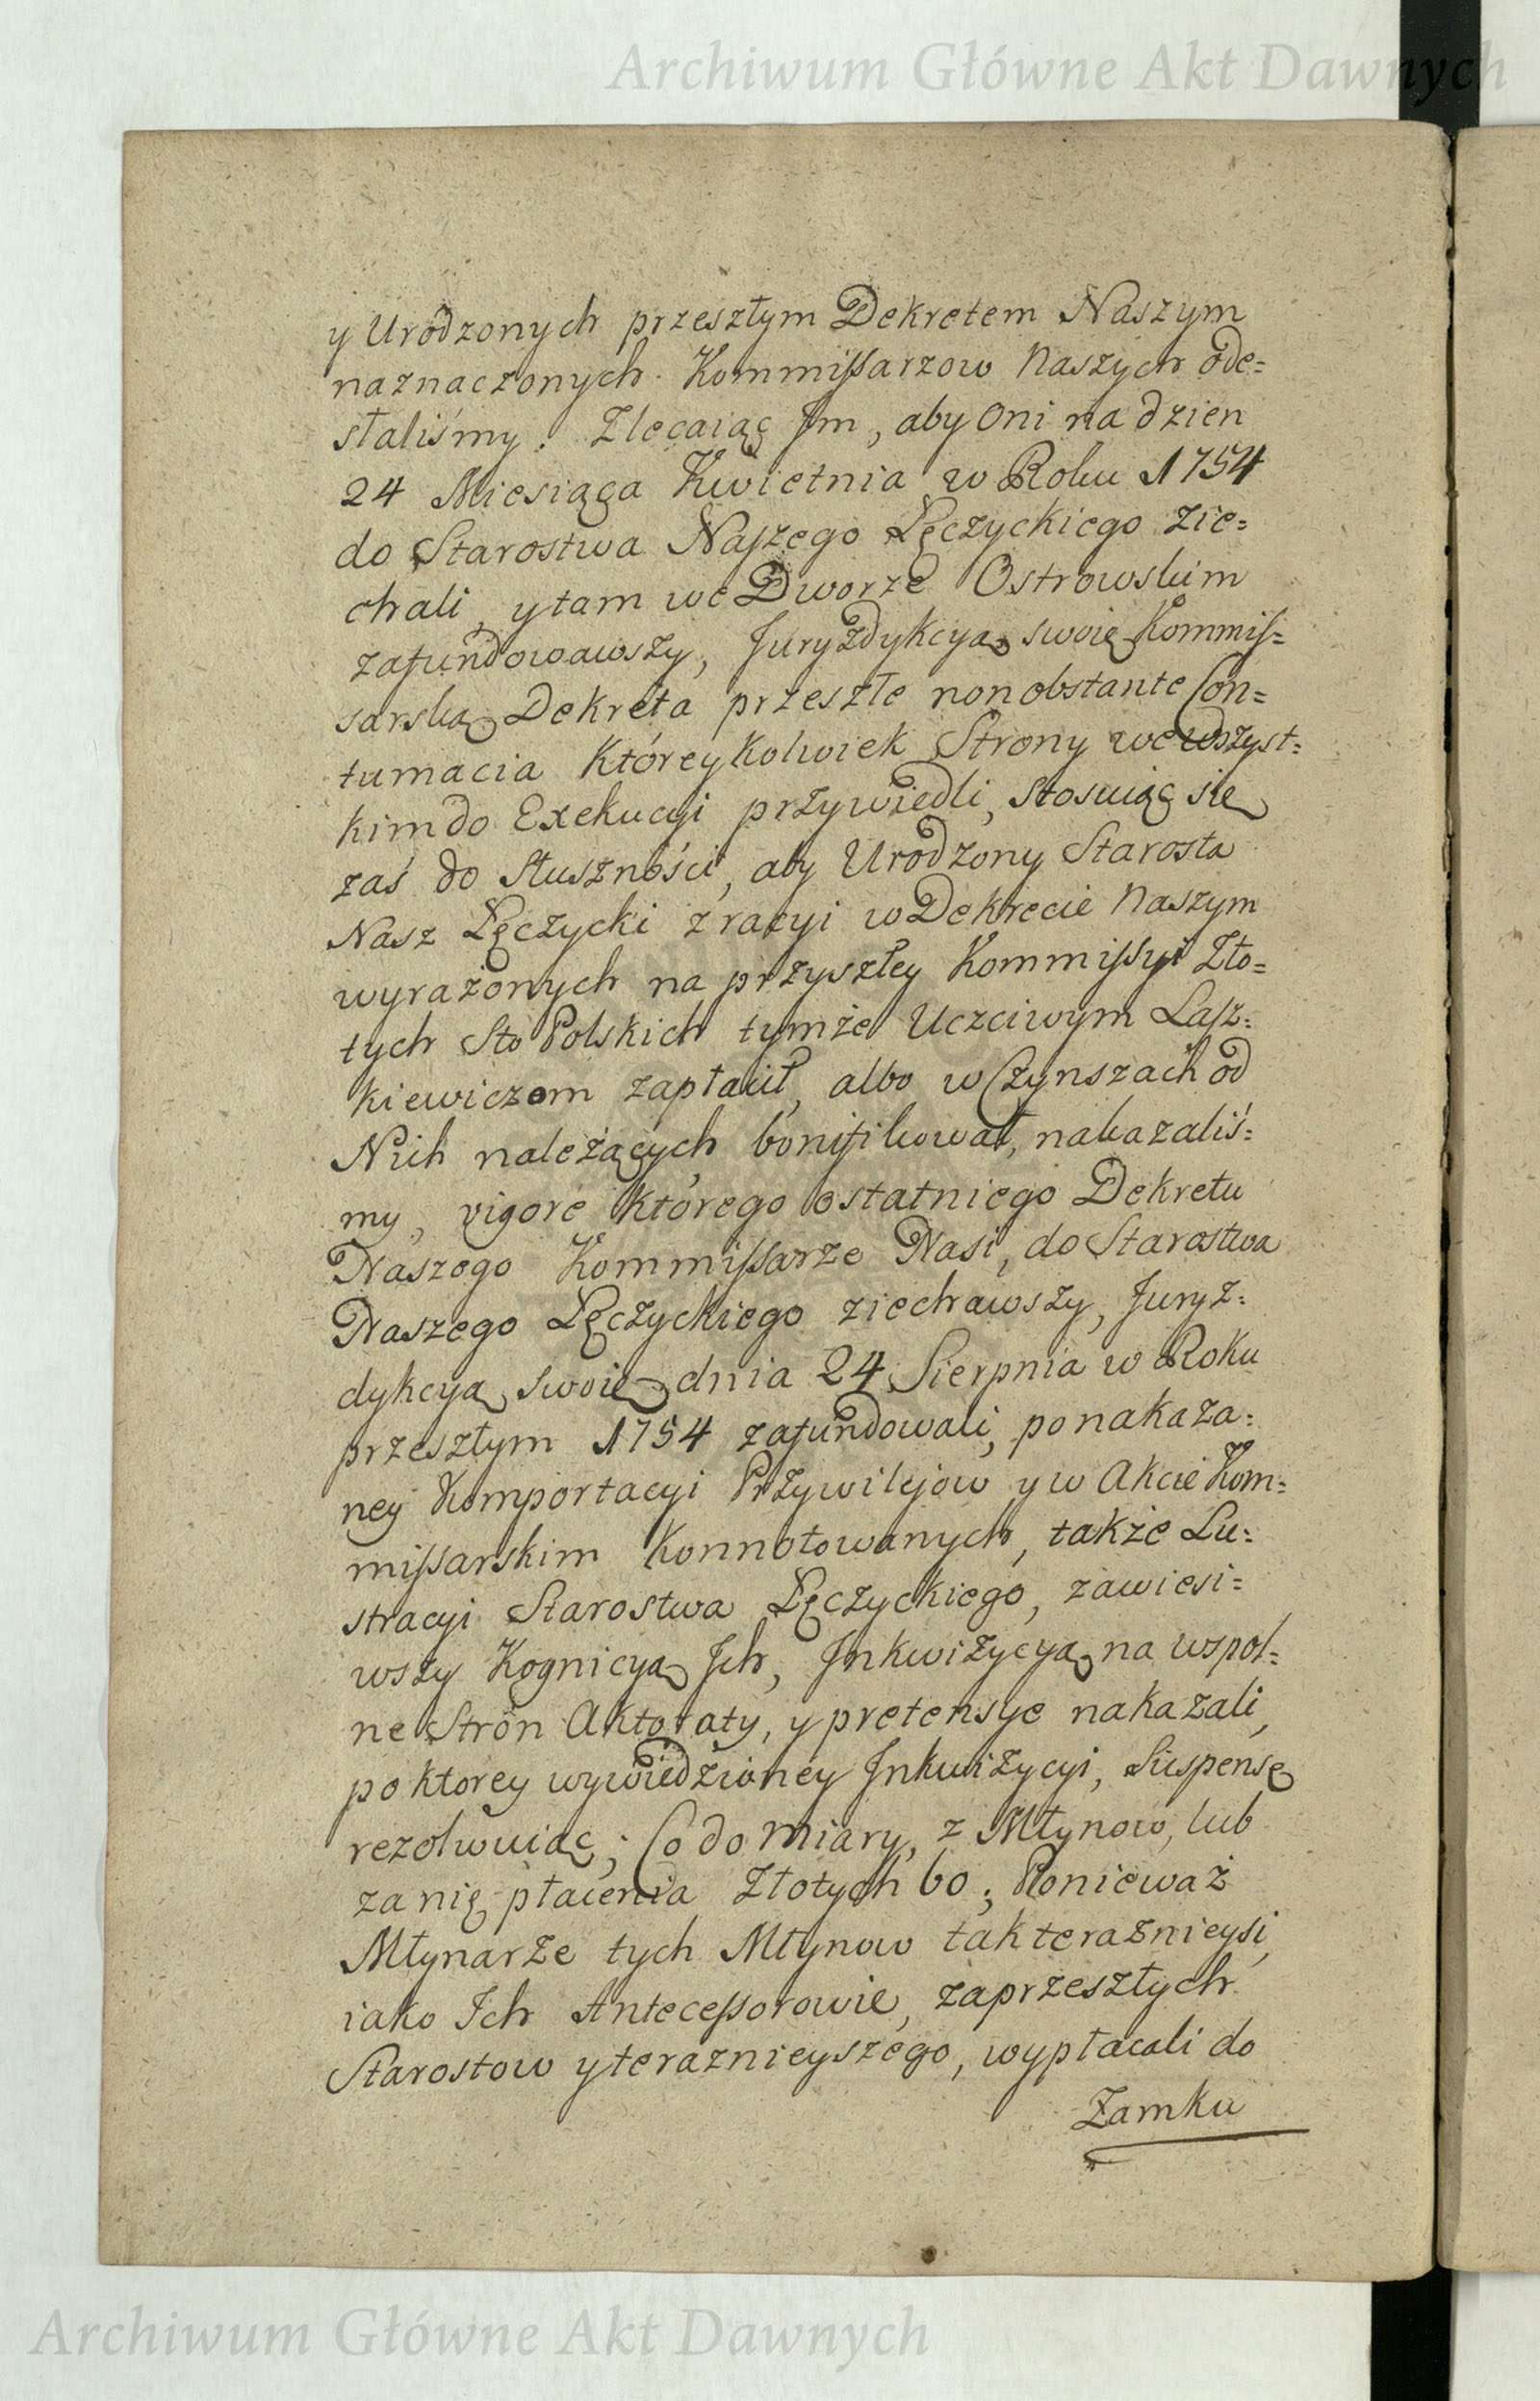 Archiwum Główne Akt Dawnych
y Urodzonych przeszłym Dekretem Naszym
naznaczonych Kommissarzow Naszych ode=
słaliśmy. Zlecaiąc Jm, aby Oni na dzien
24 Miesiąca Kwietnia w Roku 1754
do Starostwa Naszego Łęczyckiego zie=
chali, y tam we Dworze Ostrowskim
zafundowawszy, Juryzdykcyą swoię Kommis=
sarską Dekreta przeszłe non obstante Con=
tumacia Któreykolwiek Strony we wszyst=
kim do Exekucyi przywiedli, stosuiąc się
zaś do Słuszności, aby Urodzony Starosta
Nasz Łęczycki z racyi w Dekrecie Naszym
wyrażonych na przyszłey Kommissyi Zło=
tych Sto Polskich tymże Uczciwym Lasz=
kiewiczom zapłacił, albo w Czynszach od
Nich należących bonifikował, nakazaliś=
my, vigore którego ostatniego Dekretu
Naszego Kommissarze Nasi, do Starostwa
Naszego Łęczyckiego ziechawszy, Juryz=
dykcyą swoię dnia 24 Sierpnia w Roku
przeszłym 1754 zafundowali, po nakaza=
ney Komportacyi Przywilejow y w Akcie Kom=
missarskim Konnotowanych, także Lu=
stracyi Starostwa Łęczyckiego, zawiesi=
wszy Kognicyą Jch, Jnkwizycyą na wspol=
ne Stron Aktoraty, y pretensye nakazali,
po ktorey wywiedzioney Jnkwizycyi, Suspensę
rezolwuiąc; Co do Miary, z Młynow, lub
za nię płacenia Złotych 60; Ponieważ
Młynarze tych Młynow tak teraznieysi,
iako Jch Antecessorowie, za przeszłych
Starostow y teraznieyszego, wypłacali do
Zamku
Archiwum Główne Akt Dawnych